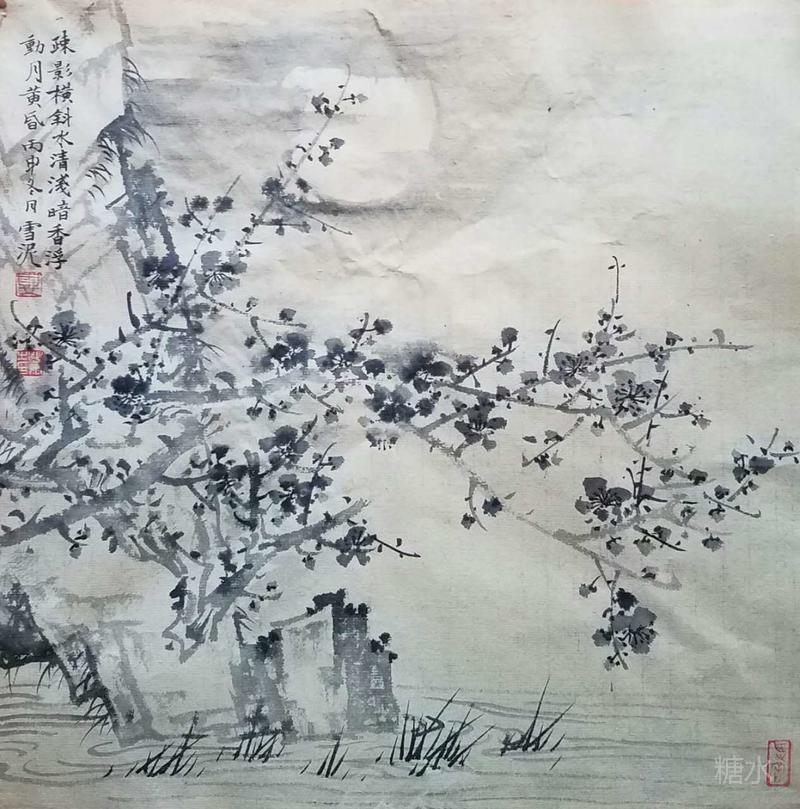 疎影横斜水清淺暗香浮
動月黄昏丙申冬月雪泥
糖水